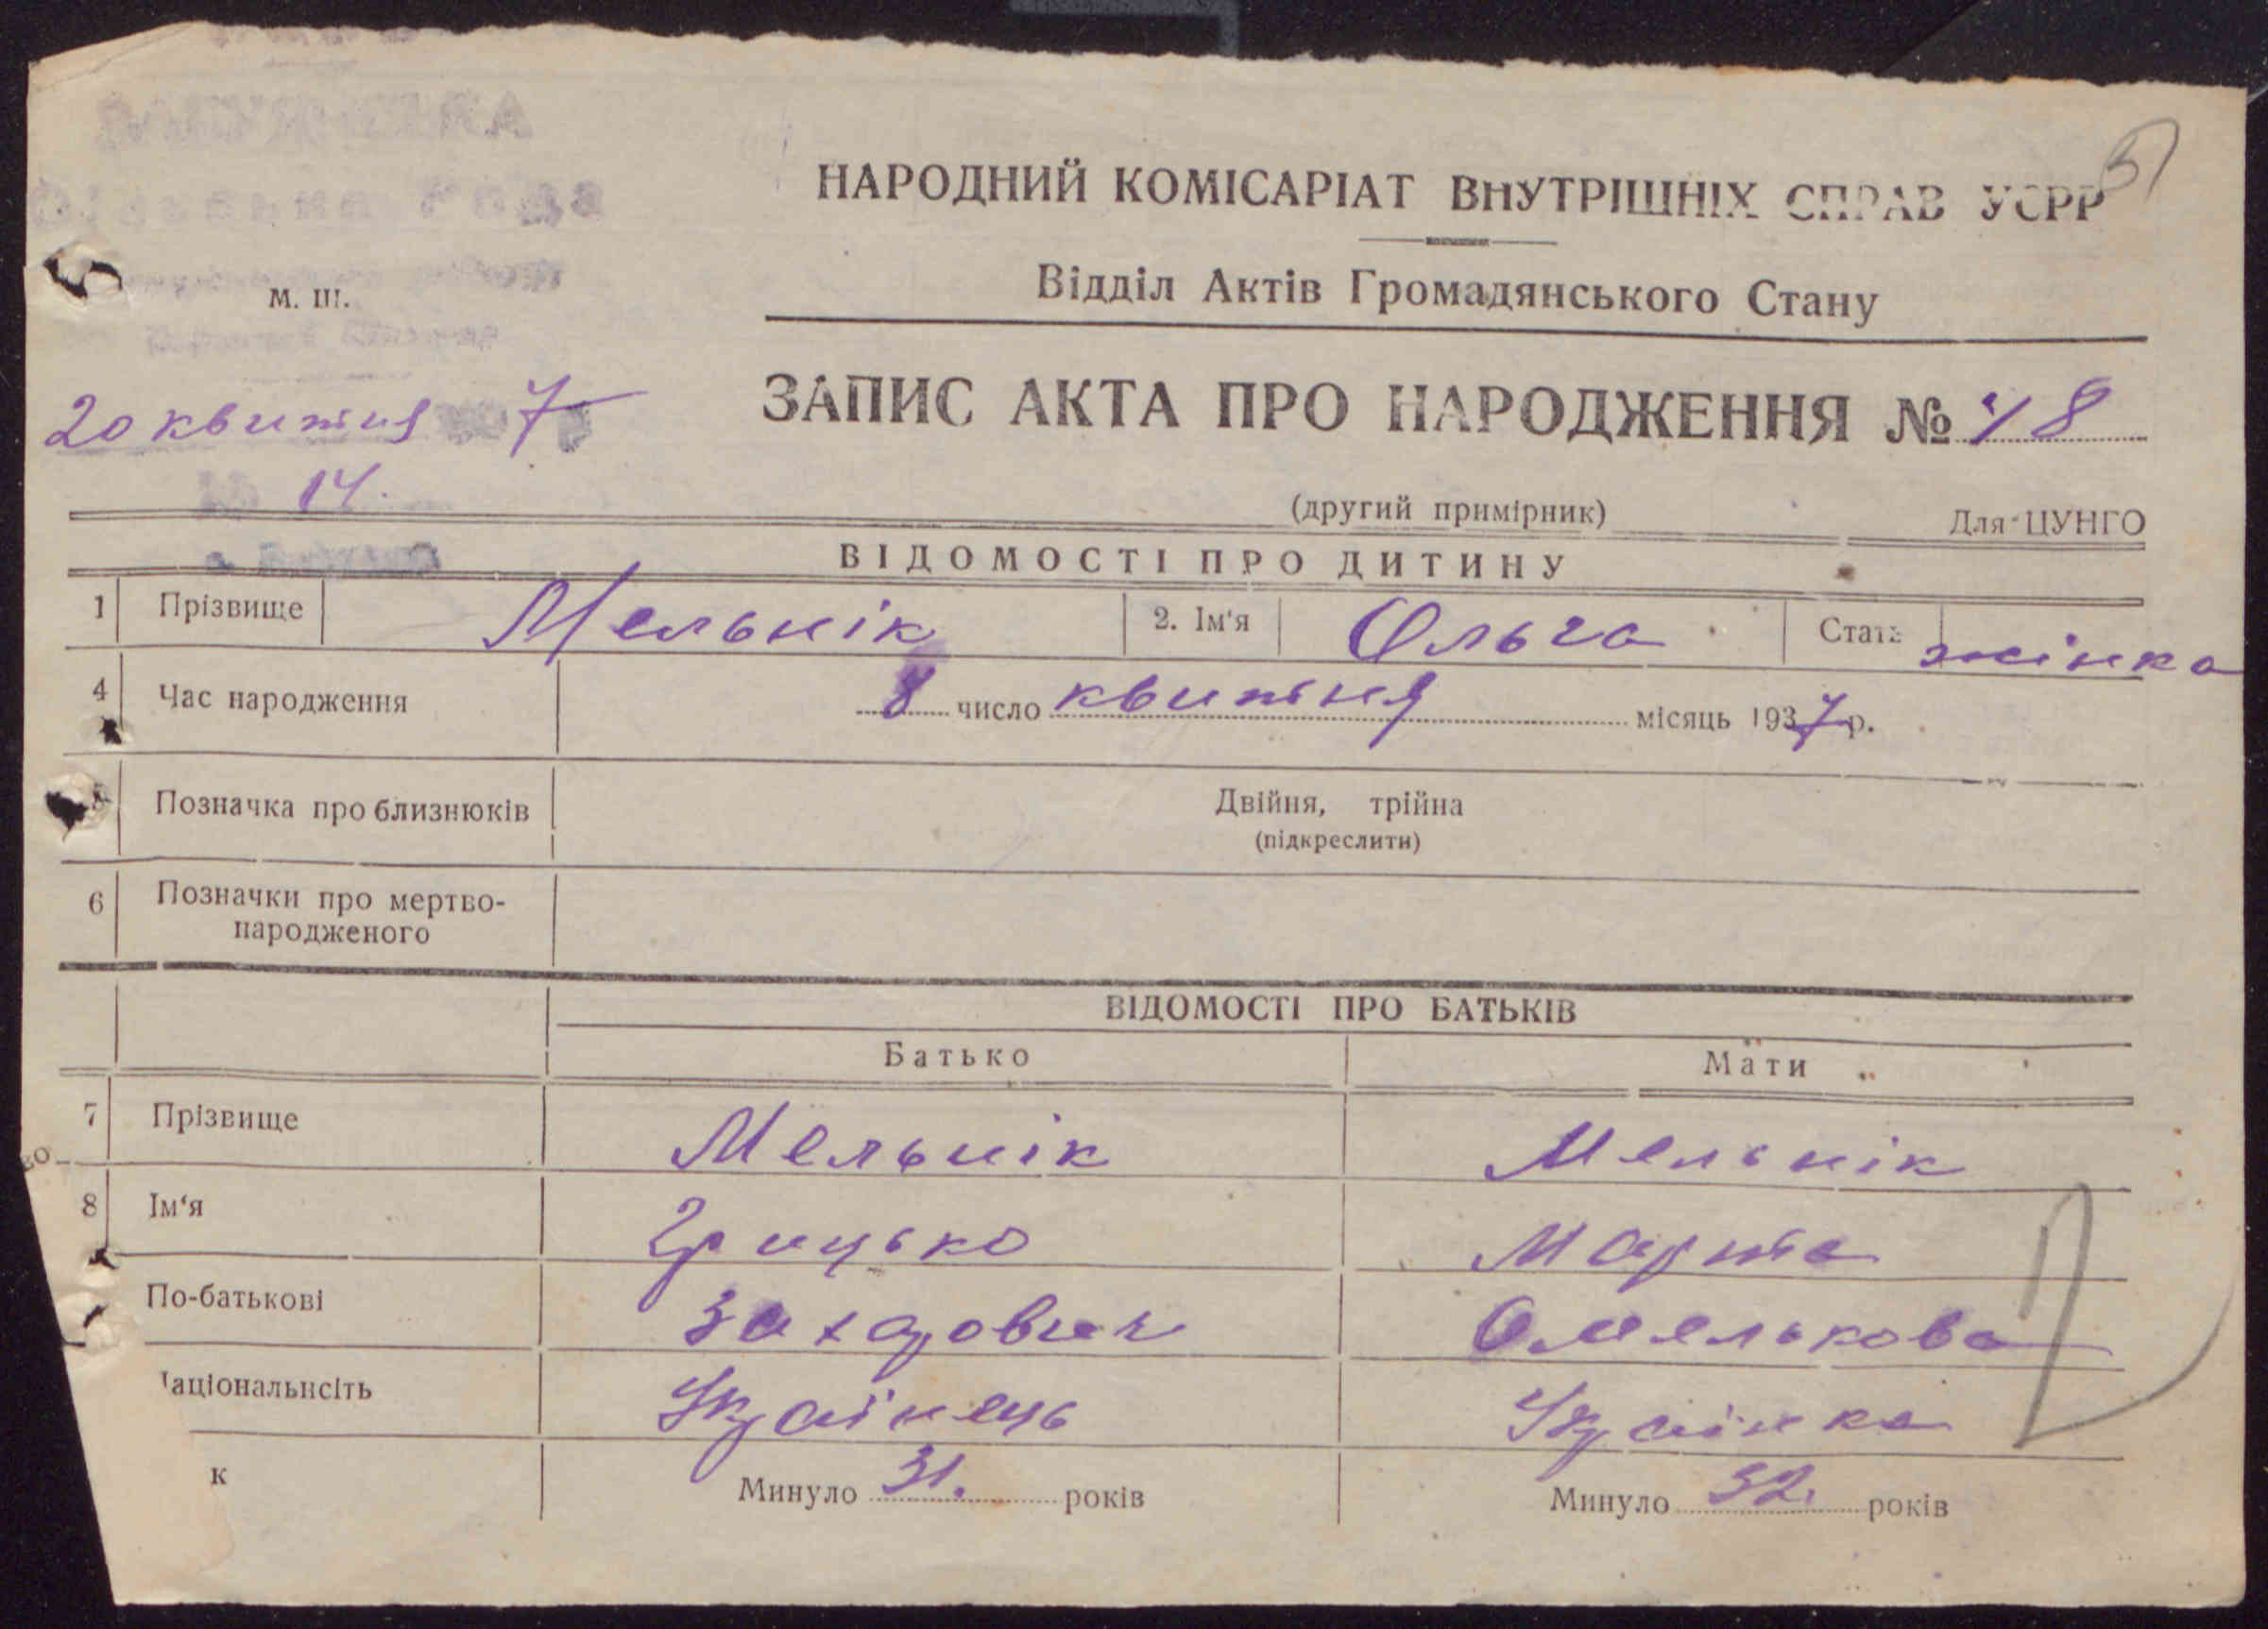 НАРОДНИЙ КОМІСАРІАТ ВНУТРІШНІХ СПРАВ УСРР
Відділ Актів Громадянського Стану
М. Ш.
20 квитня 7
14.
ЗАПИС АКТА ПРО НАРОДЖЕННЯ № 48
(другий примірник) Для ЦУНГО
ВІДОМОСТІ ПРО ДИТИНУ
1 Прізвище Мельнік 2. Ім'я Ольга Стать жінка
4 Час народження 8 число квитня місяць 1937 р.
Позначка про близнюків Двійня, трійна
(підкреслити)
6 Позначки про мертво-
народженого
ВІДОМОСТІ ПРО БАТЬКІВ
Батько Мати
7 Прізвище Мельнік Мельнік
8 Ім'я Грицько Марта
По-батькові Захарович Омелькова
аціональнсіть Українець Українка
к Минуло 31. років Минуло 32. років